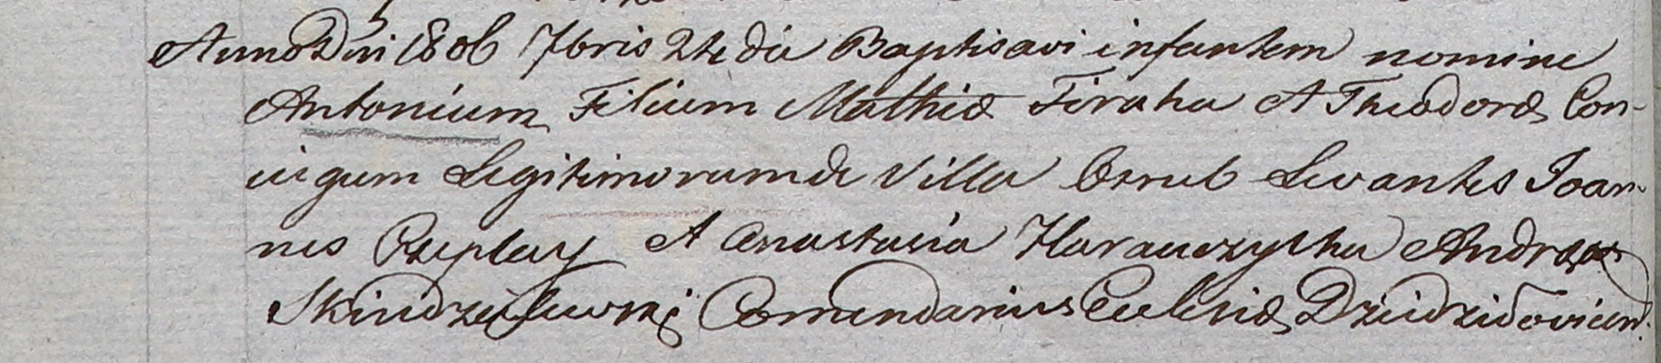 Anno Dni 1806 7bris 24 die Baptisavi infantem nomine
Antonium Filium Mathiæ Firaha et Theodoræ Con-
iugum Legitimorum de Villa Osrub Levantes Joan-
nes et Anastasia Andreas
Skindzielewski Comendarius Ecclesiæ Dziedzidovicen.